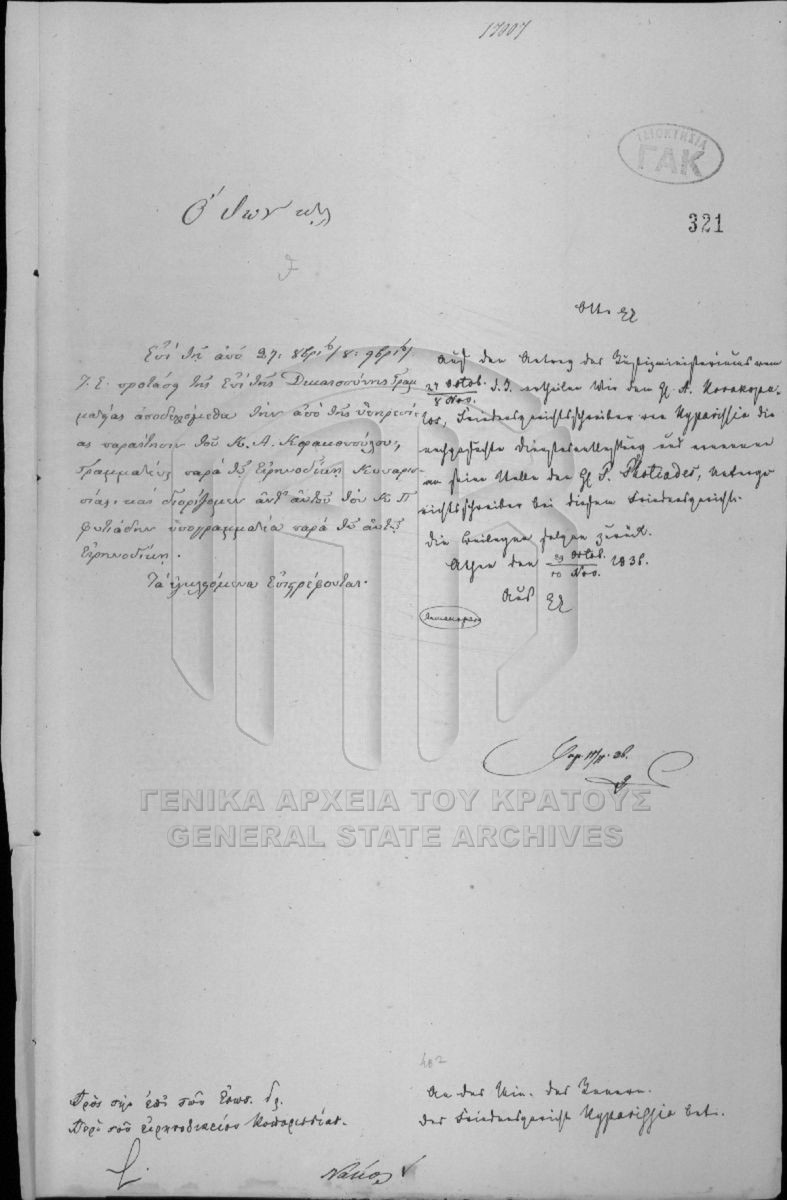 17007
ΙΔΙΟΚΤΗΣΙΑ
ΓΑΚ
321
Ὁ Ὄθων κλ
Otto
Ἐπὶ τῇ ἀπὸ 27: 8βρίου/8: 9βρίου/
ἰ. ἔ. προτάσει τῆς Ἐπὶ τῆς Δικαιοσύνης Γραμ
ματείας ἀποδεχόμεθα τὴν ἀπὸ τῆς ὑπηρεσί
ας παραίτησιν τοῦ Κ. Α. Κορακοπούλου,
Γραμματέως παρὰ τῷ Εἰρηνοδίκῃ Κυπαρισ
σίας, καὶ διορίζομεν ἀντ' αὐτοῦ τὸν Κ Π
Φωτιάδην ὑπογραμματέα παρὰ τῷ αὐτῷ
Εἰρηνοδίκῃ.
Τὰ ἐγκλειόμενα ἐπιστρέφονται.
Auf den Antrag des Justizministeriums vom
27 Octob. / 8 Nov. d. J. ertheilen Wir dem H. A. Korakopu-
los, Friedensgerichtsschreiber von Kyparissia die
nachgesuchte Dienstesentlassung und ernennen
an seine Stelle den H. P. Photiades, Unterge-
richtsschreiber bei diesem Friedensgericht.
Die Beilagen folgen zurück.
Athen den 29 Octob. / 10 Nov. 1838.
ΓΕΝΙΚΑ ΑΡΧΕΙΑ ΤΟΥ ΚΡΑΤΟΥΣ
GENERAL STATE ARCHIVES
402
Πρὸς τὴν ἐπὶ τῶν Ἐσωτ. Γρ.
Περὶ τοῦ εἰρηνοδικείου Κυπαρισσίας.
An das Min. des Innern.
Das Friedensgericht Kyparissia betr.